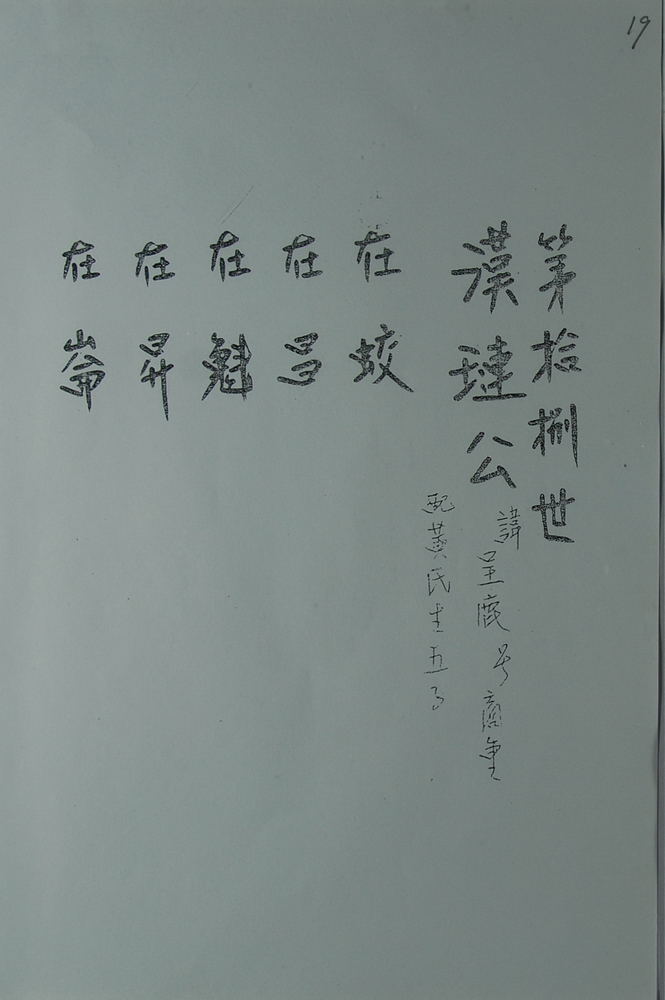 19
第拾捌世
漢璉公
諱呈鹿号商重
配黄氏生五子
在蛟
在多
在魁
在昇
在崙